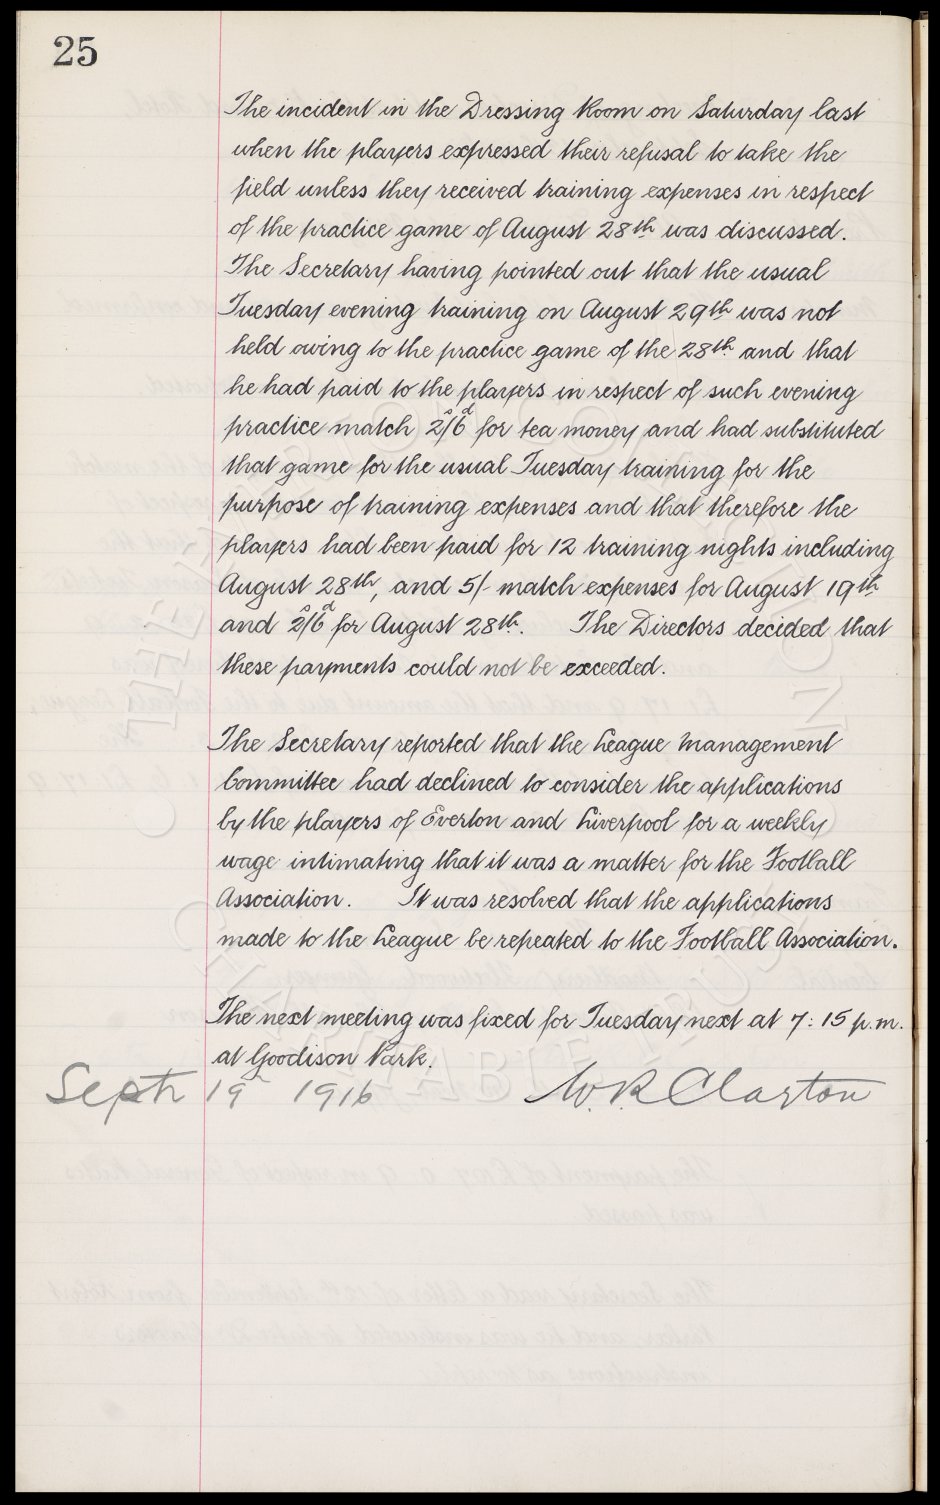 25
The incident in the Dressing Room on Saturday last
when the players expressed their refusal to take the
field unless they received training expenses in respect
of the practice game of August 28th was discussed.
The Secretary having pointed out that the usual
Tuesday evening training on August 29th was not
held owing to the practice game of the 28th and that
he had paid to the players in respect of such evening
practice match 2s/6d for tea money and had substituted
that game for the usual Tuesday training for the
purpose of training expenses and that therefore the
players had been paid for 12 training nights including
August 28th, and 5/- match expenses for August 19th
and 2s/6d for August 28th. The Directors decided that
these payments could not be exceeded.
The Secretary reported that the League Management
Committee had declined to consider the applications
by the players of Everton and Liverpool for a weekly
wage intimating that it was a matter for the Football
Association. It was resolved that the applications
made to the League be repeated to the Football Association.
The next meeting was fixed for Tuesday next at 7:15 p.m.
at Goodison Park.
Septr 19 1916 W. R Clayton
THE EVERTON COLLECTION
CHARITABLE TRUST